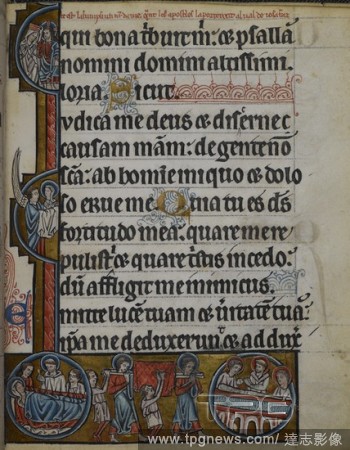 qui bona tribuit m: ⁊ psallā
nomini domini altissimi.
loria. Sicut.
vdica me deus ⁊ discerne c
causam meam: de gente nō
scā: ab homine iniquo ⁊ dolo
so erue me. Quia tu es ds
fortitudo mea: quare me re
pulisti ⁊ quare tristis incedo:
dū affligit me inimicus.
mitte lucē tuam ⁊ ueritatē tuā:
ipsa me deduxerunt ⁊ addux
www.tpgnews.com / 達志影像